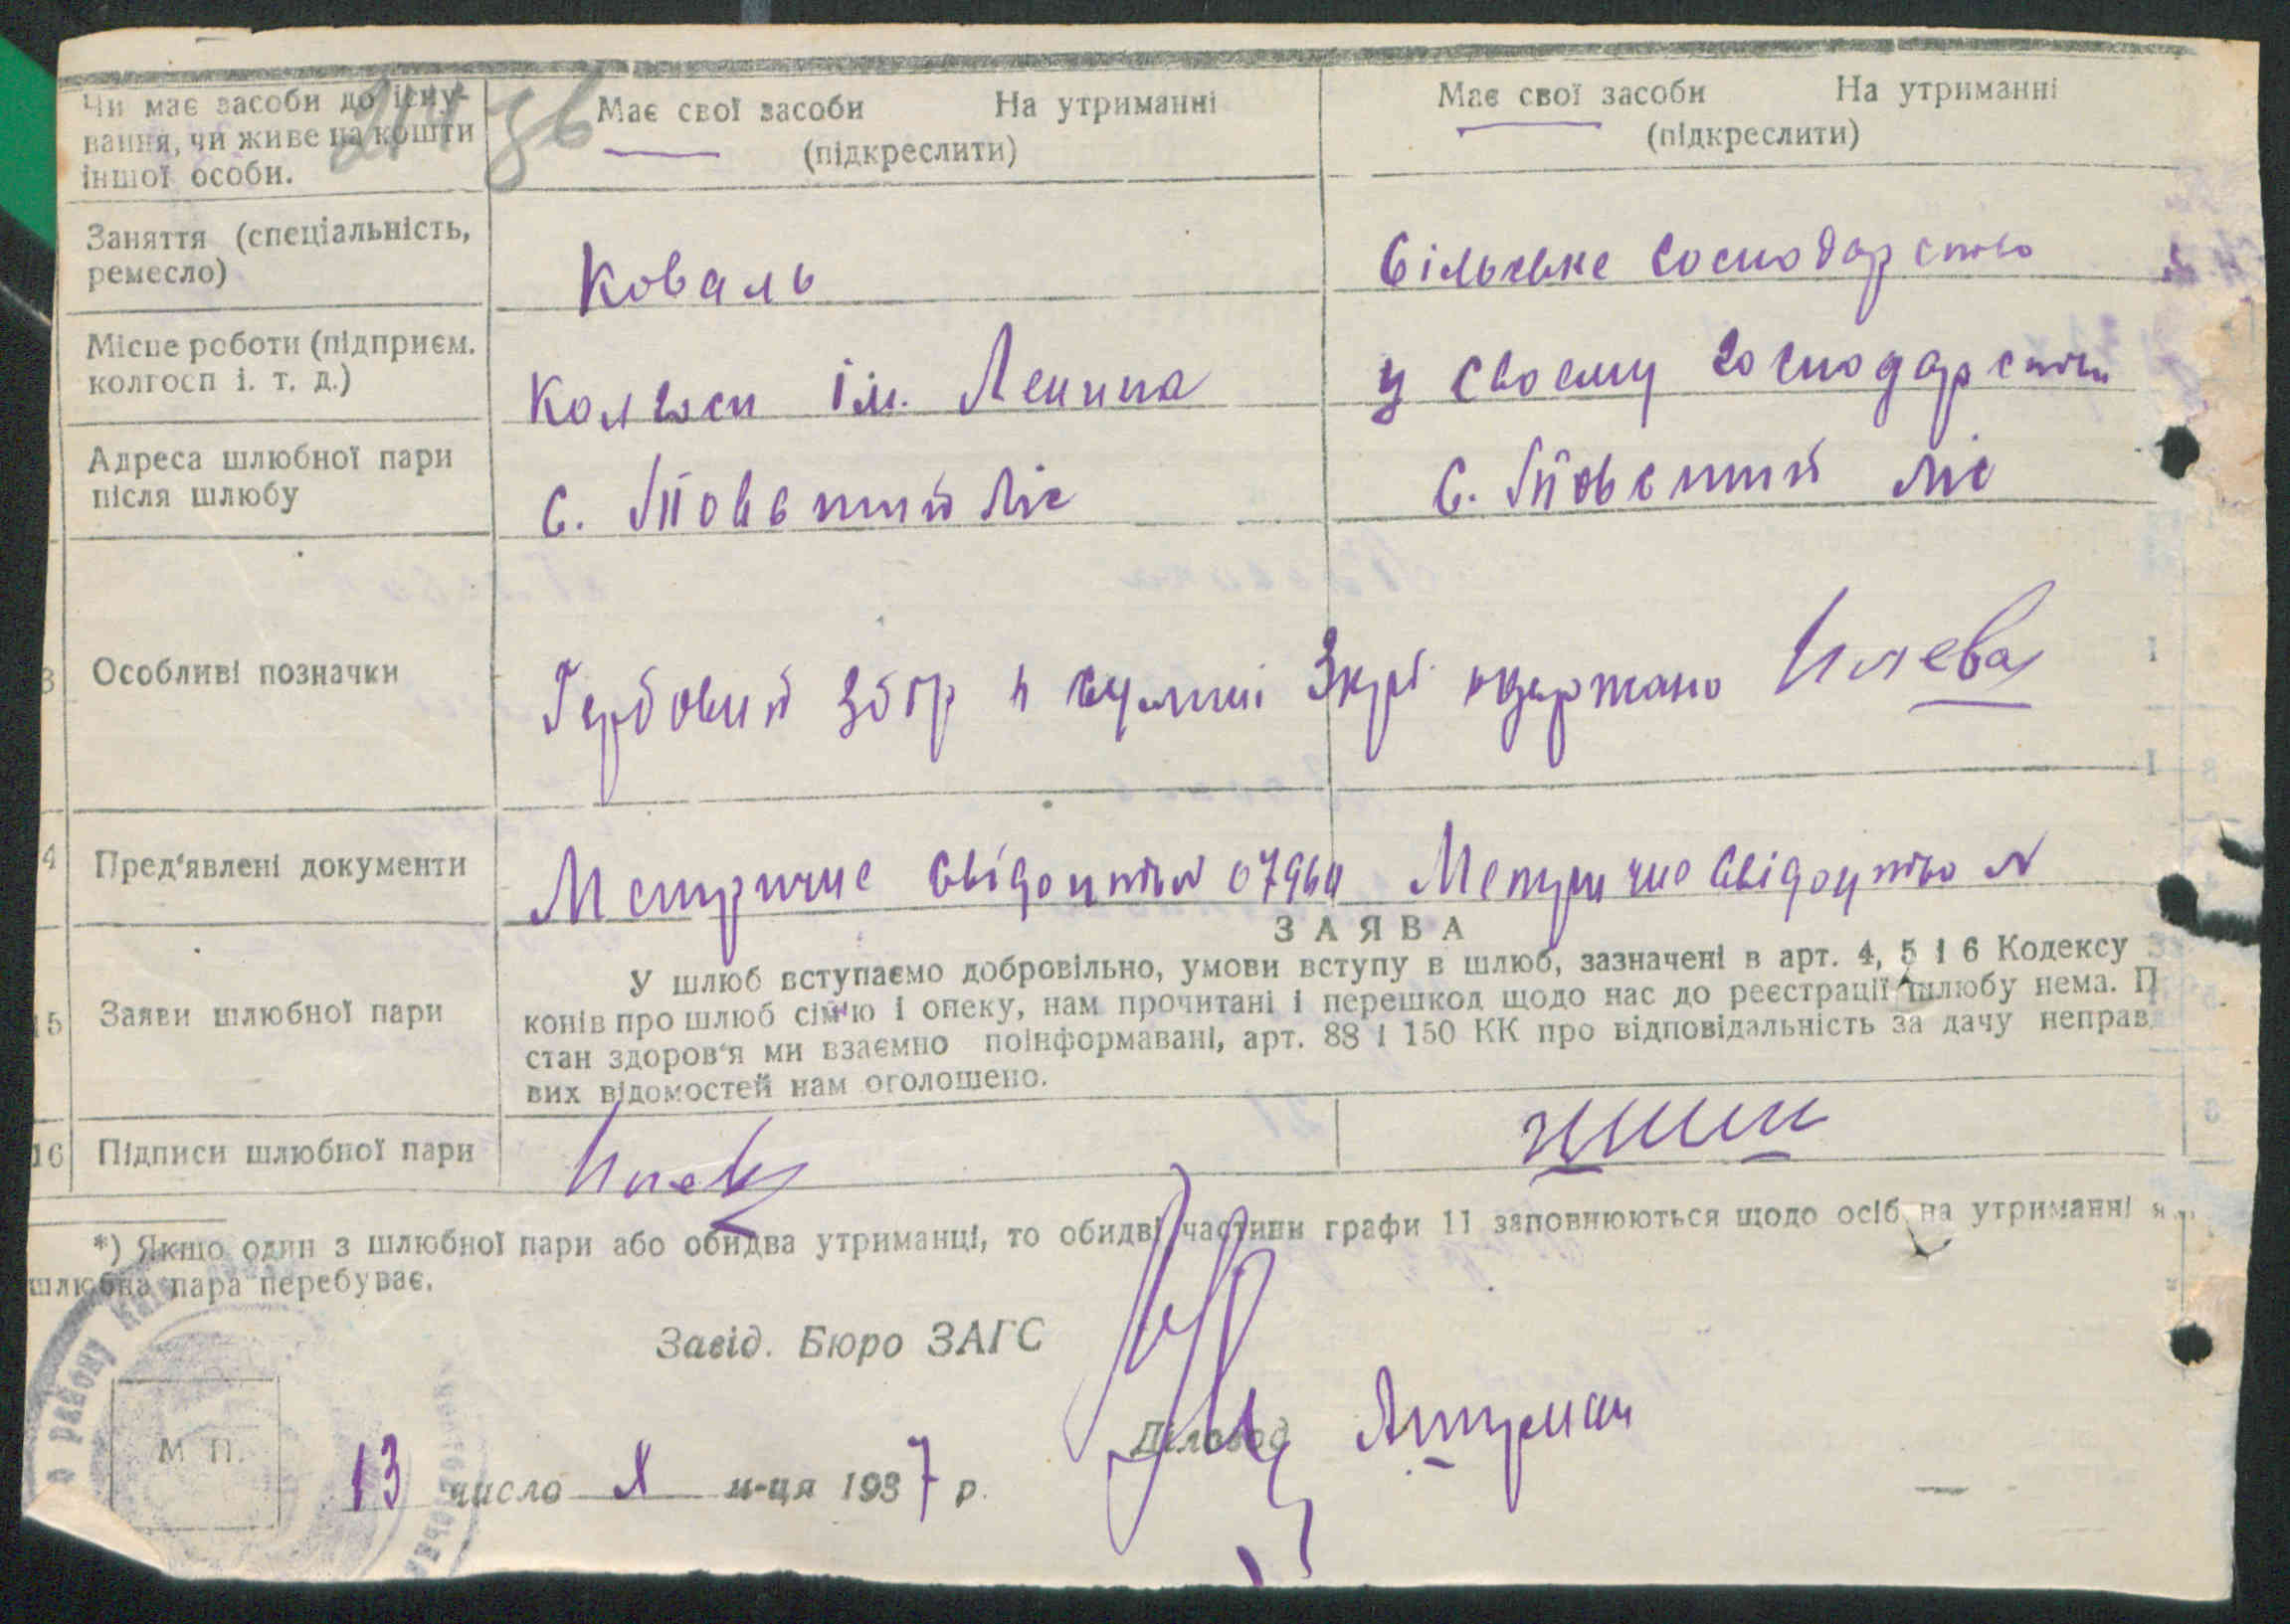 Чи має засоби до існу-
вання, чи живе на кошти
іншої особи.
Має свої засоби На утриманні
(підкреслити)
Має свої засоби На утриманні
(підкреслити)
Заняття (спеціальність,
ремесло)
Коваль
Сільське господарство
Місце роботи (підприєм.
колгосп і. т. д.)
Колгосп ім. Леніна
у своему господарстві
Адреса шлюбної пари
після шлюбу
с. Товстий Ліс
с. Товстий Ліс
3 Особливі позначки
Гербовий збір в суммі 3крб одержано
4 Пред'явлені документи
Метричне свідоцтво
Метричне свідоцтво N
ЗАЯВА
15 Заяви шлюбної пари
У шлюб вступаємо добровільно, умови вступу в шлюб, зазначені в арт. 4, 5 і 6 Кодексу З
конів про шлюб сім'ю і опеку, нам прочитані і перешкод щодо нас до реєстрації шлюбу нема. П
стан здоров'я ми взаємно поінформавані, арт. 88 і 150 КК про відповідальність за дачу неправ
вих відомостей нам оголошено.
16 Підписи шлюбної пари
*) Якщо один з шлюбної пари або обидва утриманці, то обидві частини графи 11 заповнюються щодо осіб на утриманні я
шлюбна пара перебуває.
Завід. Бюро ЗАГС
Діловод
району
М П.
13 число X м-ця 1937 р.